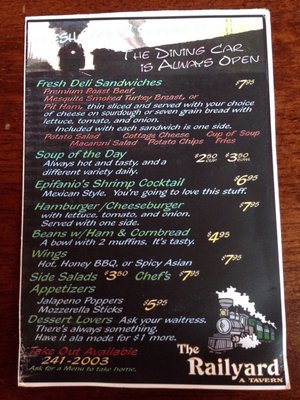 The Dining Car
is Always Open
Fresh Deli Sandwiches $7.95
Premium Roast Beef,
Mesquite Smoked Turkey Breast, or
Pit Ham, thin sliced and served with your choice
of cheese on sourdough or seven grain bread with
lettuce, tomato, and onion.
Included with each sandwich is one side.
Potato Salad Cottage Cheese Cup of Soup
Macaroni Salad Potato Chips Fries
Soup of the Day $2.50 $3.50
Always hot and tasty, and a
different variety daily.
Epifanio's Shrimp Cocktail $6.95
Mexican Style. You're going to love this stuff.
Hamburger/Cheeseburger $7.95
with lettuce, tomato, and onion.
Served with one side.
Beans w/Ham & Cornbread $4.95
A bowl with 2 muffins. It's tasty.
Wings $7.95
Hot, Honey BBQ, or Spicy Asian
Side Salads $3.50 Chef's $7.95
Appetizers
Jalapeno Poppers $5.95
Mozzerella Sticks
Dessert Lovers Ask your waitress.
There's always something.
Have it ala mode for $1 more.
Take Out Available
241-2003
Ask for a Menu to take home.
The
Railyard
A TAVERN